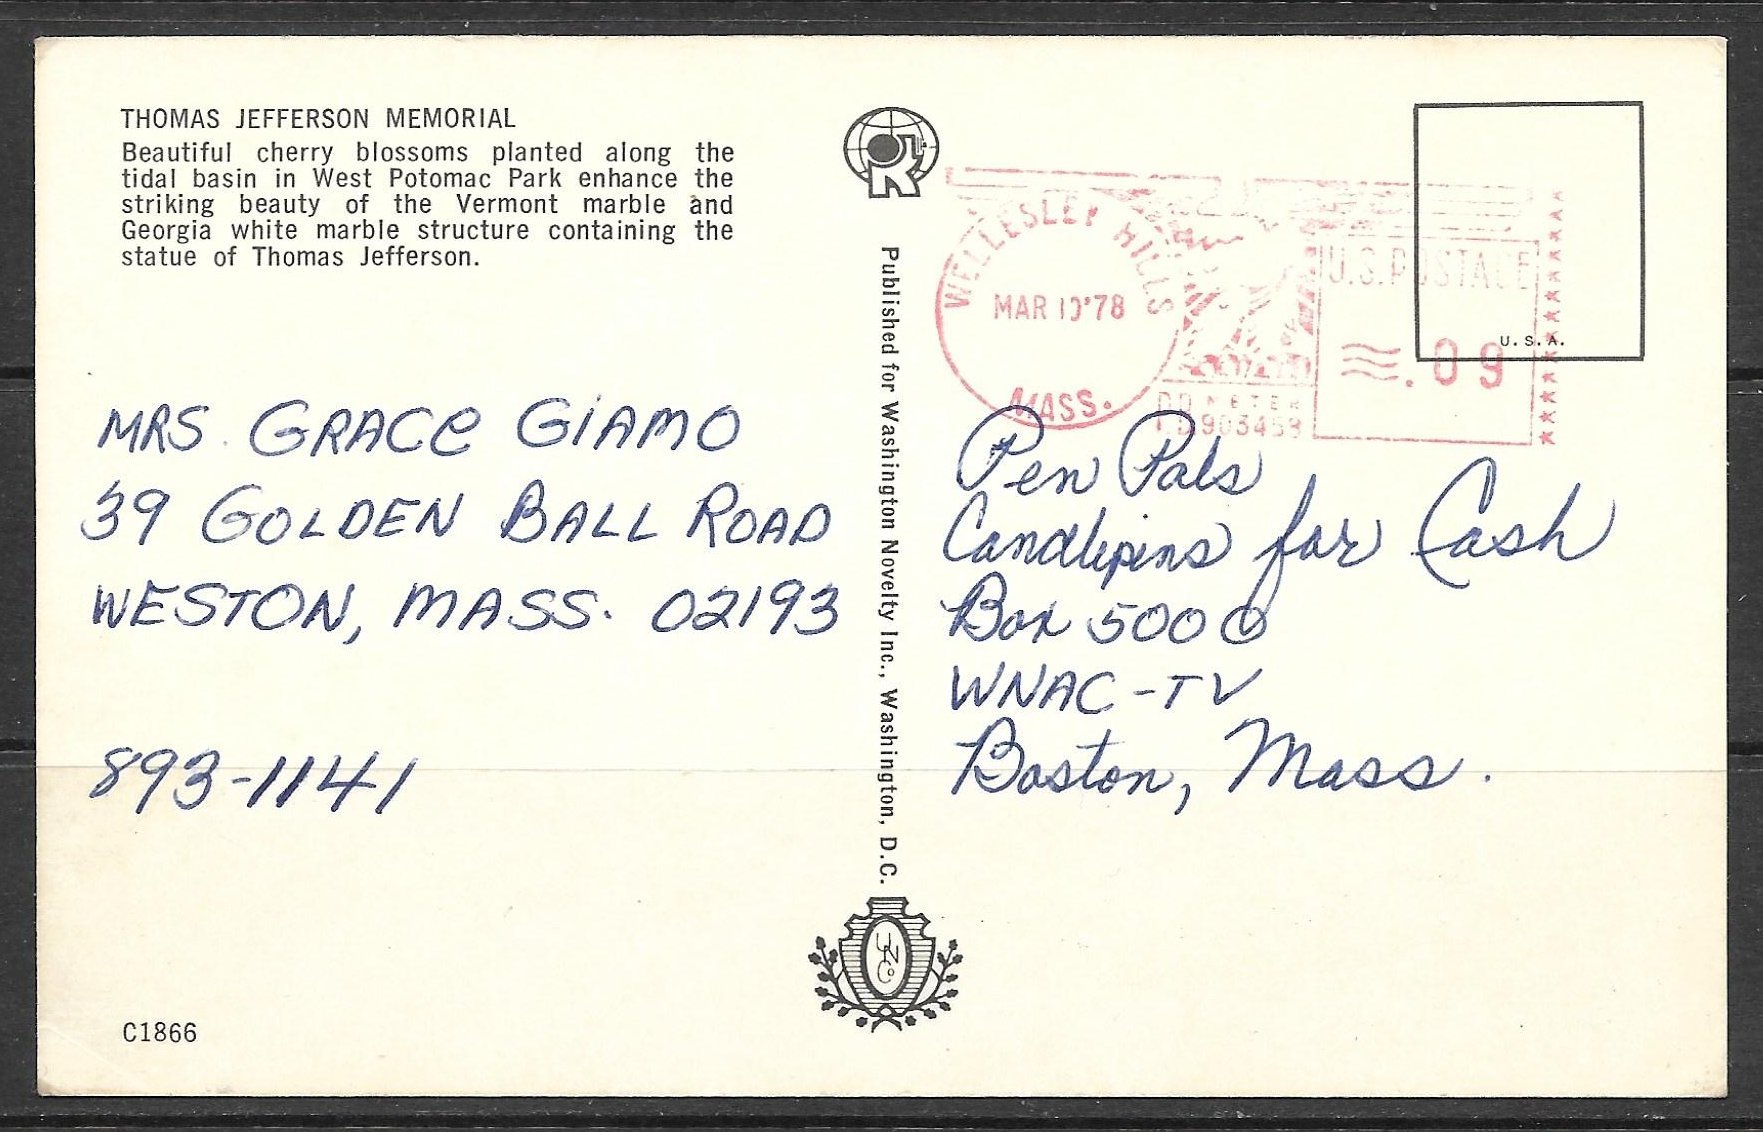 THOMAS JEFFERSON MEMORIAL
Beautiful cherry blossoms planted along the
tidal basin in West Potomac Park enhance the
striking beauty of the Vermont marble and
Georgia white marble structure containing the
statue of Thomas Jefferson.
MRS. GRACE GIAMO
39 GOLDEN BALL ROAD
WESTON, MASS. 02193
893-1141
C1866
K
Published for Washington Novelty Inc., Washington, D.C.
WNCo
WELLESLEY HILLS
MAR 10'78
MASS.
METER
903459
U.S.POSTAGE
.09
U.S.A.
Pen Pals
Candlepins for Cash
Box 5000
WNAC-TV
Boston, Mass.